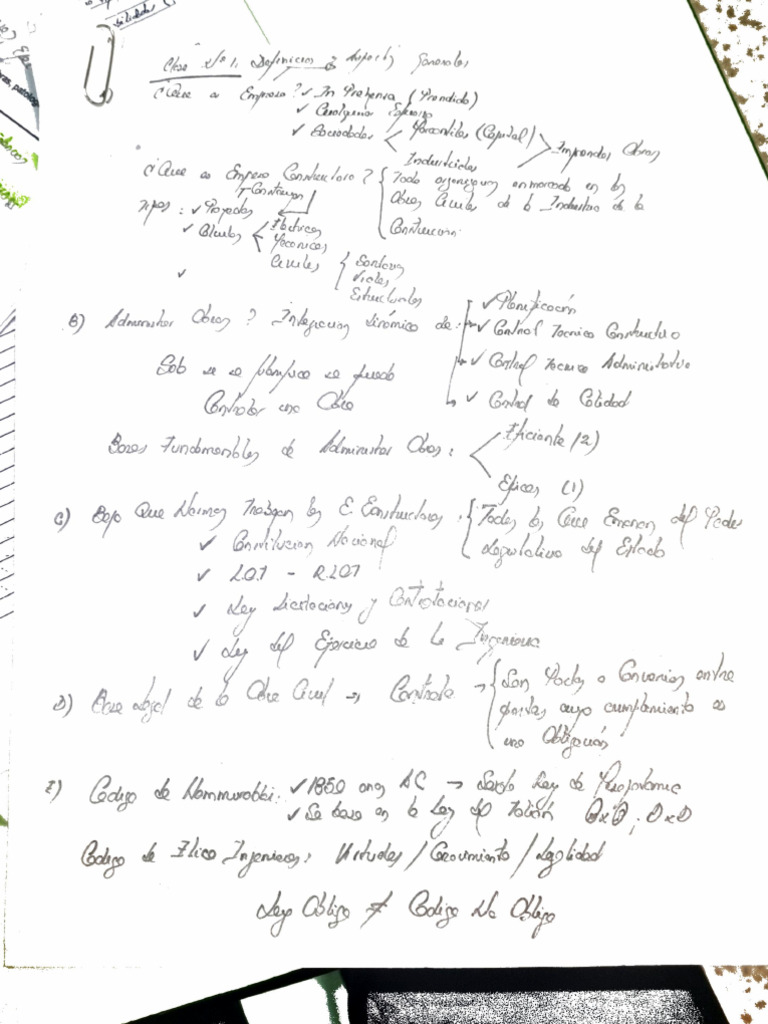 Clase Nº 1: Definición y Aspectos Generales
¿Que es Empresa? ✓ In Prehensa (Prendido)
✓ Cualquier Esfuerzo
✓ Sociedades < Mercantiles (Capital) > Emprender Obras
Industriales
¿Que es Empresa Constructora? { Toda organizacion enmarcada en las
Obras Civiles de la Industria de la
Construcción
Tipos: ✓ Proyectos
✓ Obras < Electricas
Mecanicas
Civiles { Sanitarias
Viales
Estructurales
✓
B) Administrar Obras? Integracion dinámica de: ✓ Planificación
✓ Control Tecnico Constructivo
✓ Control Tecnico Administrativo
✓ Control de Calidad
Solo si se planifica se puede
Controlar una Obra
Bases Fundamentales de Administrar Obras: < Eficiente (2)
Eficaz (1)
C) Bajo Que Normas Trabajan las E. Constructoras: { Todas las Que Emanan del Poder
Legislativo del Estado
✓ Constitucion Nacional
✓ LOT - RLOT
✓ Ley Licitaciones y Contrataciones
✓ Ley del Ejercicio de la Ingenieria
D) Base Legal de la Obra Civil → Contrato → { Son Pactos o Convenios entre
partes cuyo cumplimiento es
una Obligación
E) Codigo de Hammurabbi: ✓ 1850 años AC → Ley de
✓ Se basa en la Ley del Talión OxO; DxD
Codigo de Etica Ingenieros: Virtudes / Conocimiento / Legalidad
Ley Obliga ≠ Codigo No Obliga